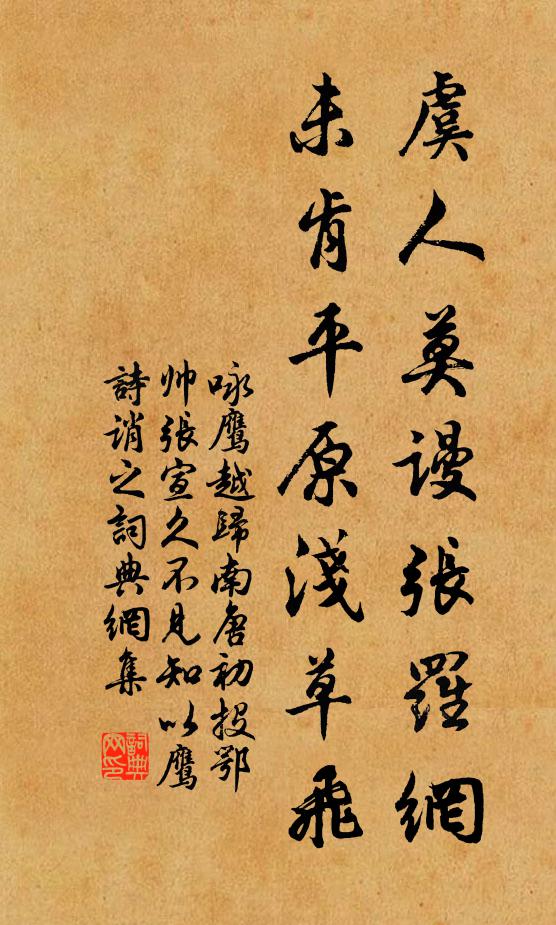 虞人莫謾張羅網
未肯平原淺草飛
咏鹰越歸南唐初投鄂
帅張宣久不見知以鹰
詩诮之詞典網集
詞典
网印